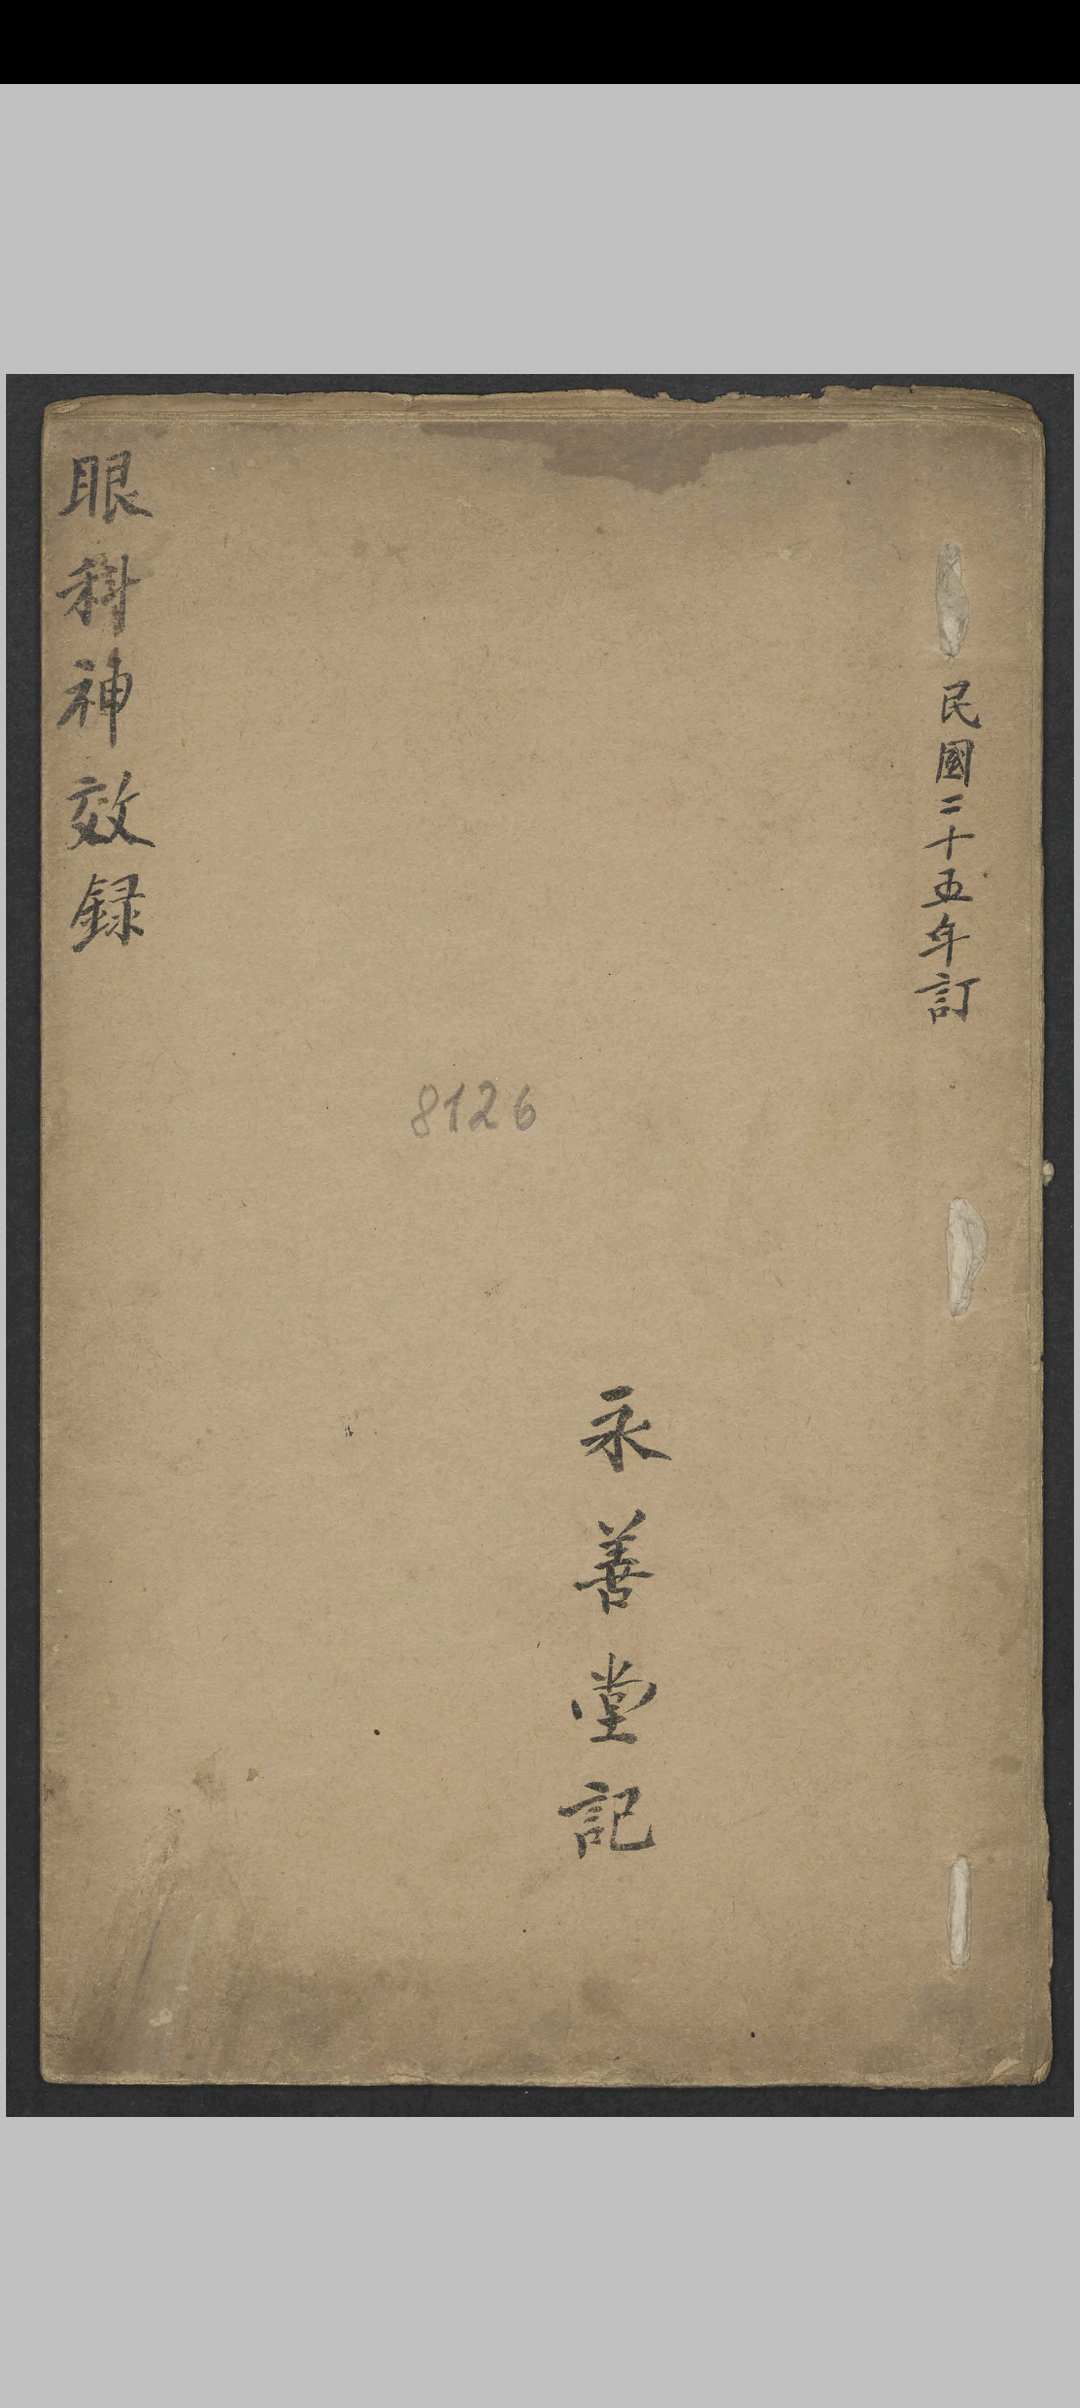 民國二十五年訂
永善堂記
8126
眼科神效録